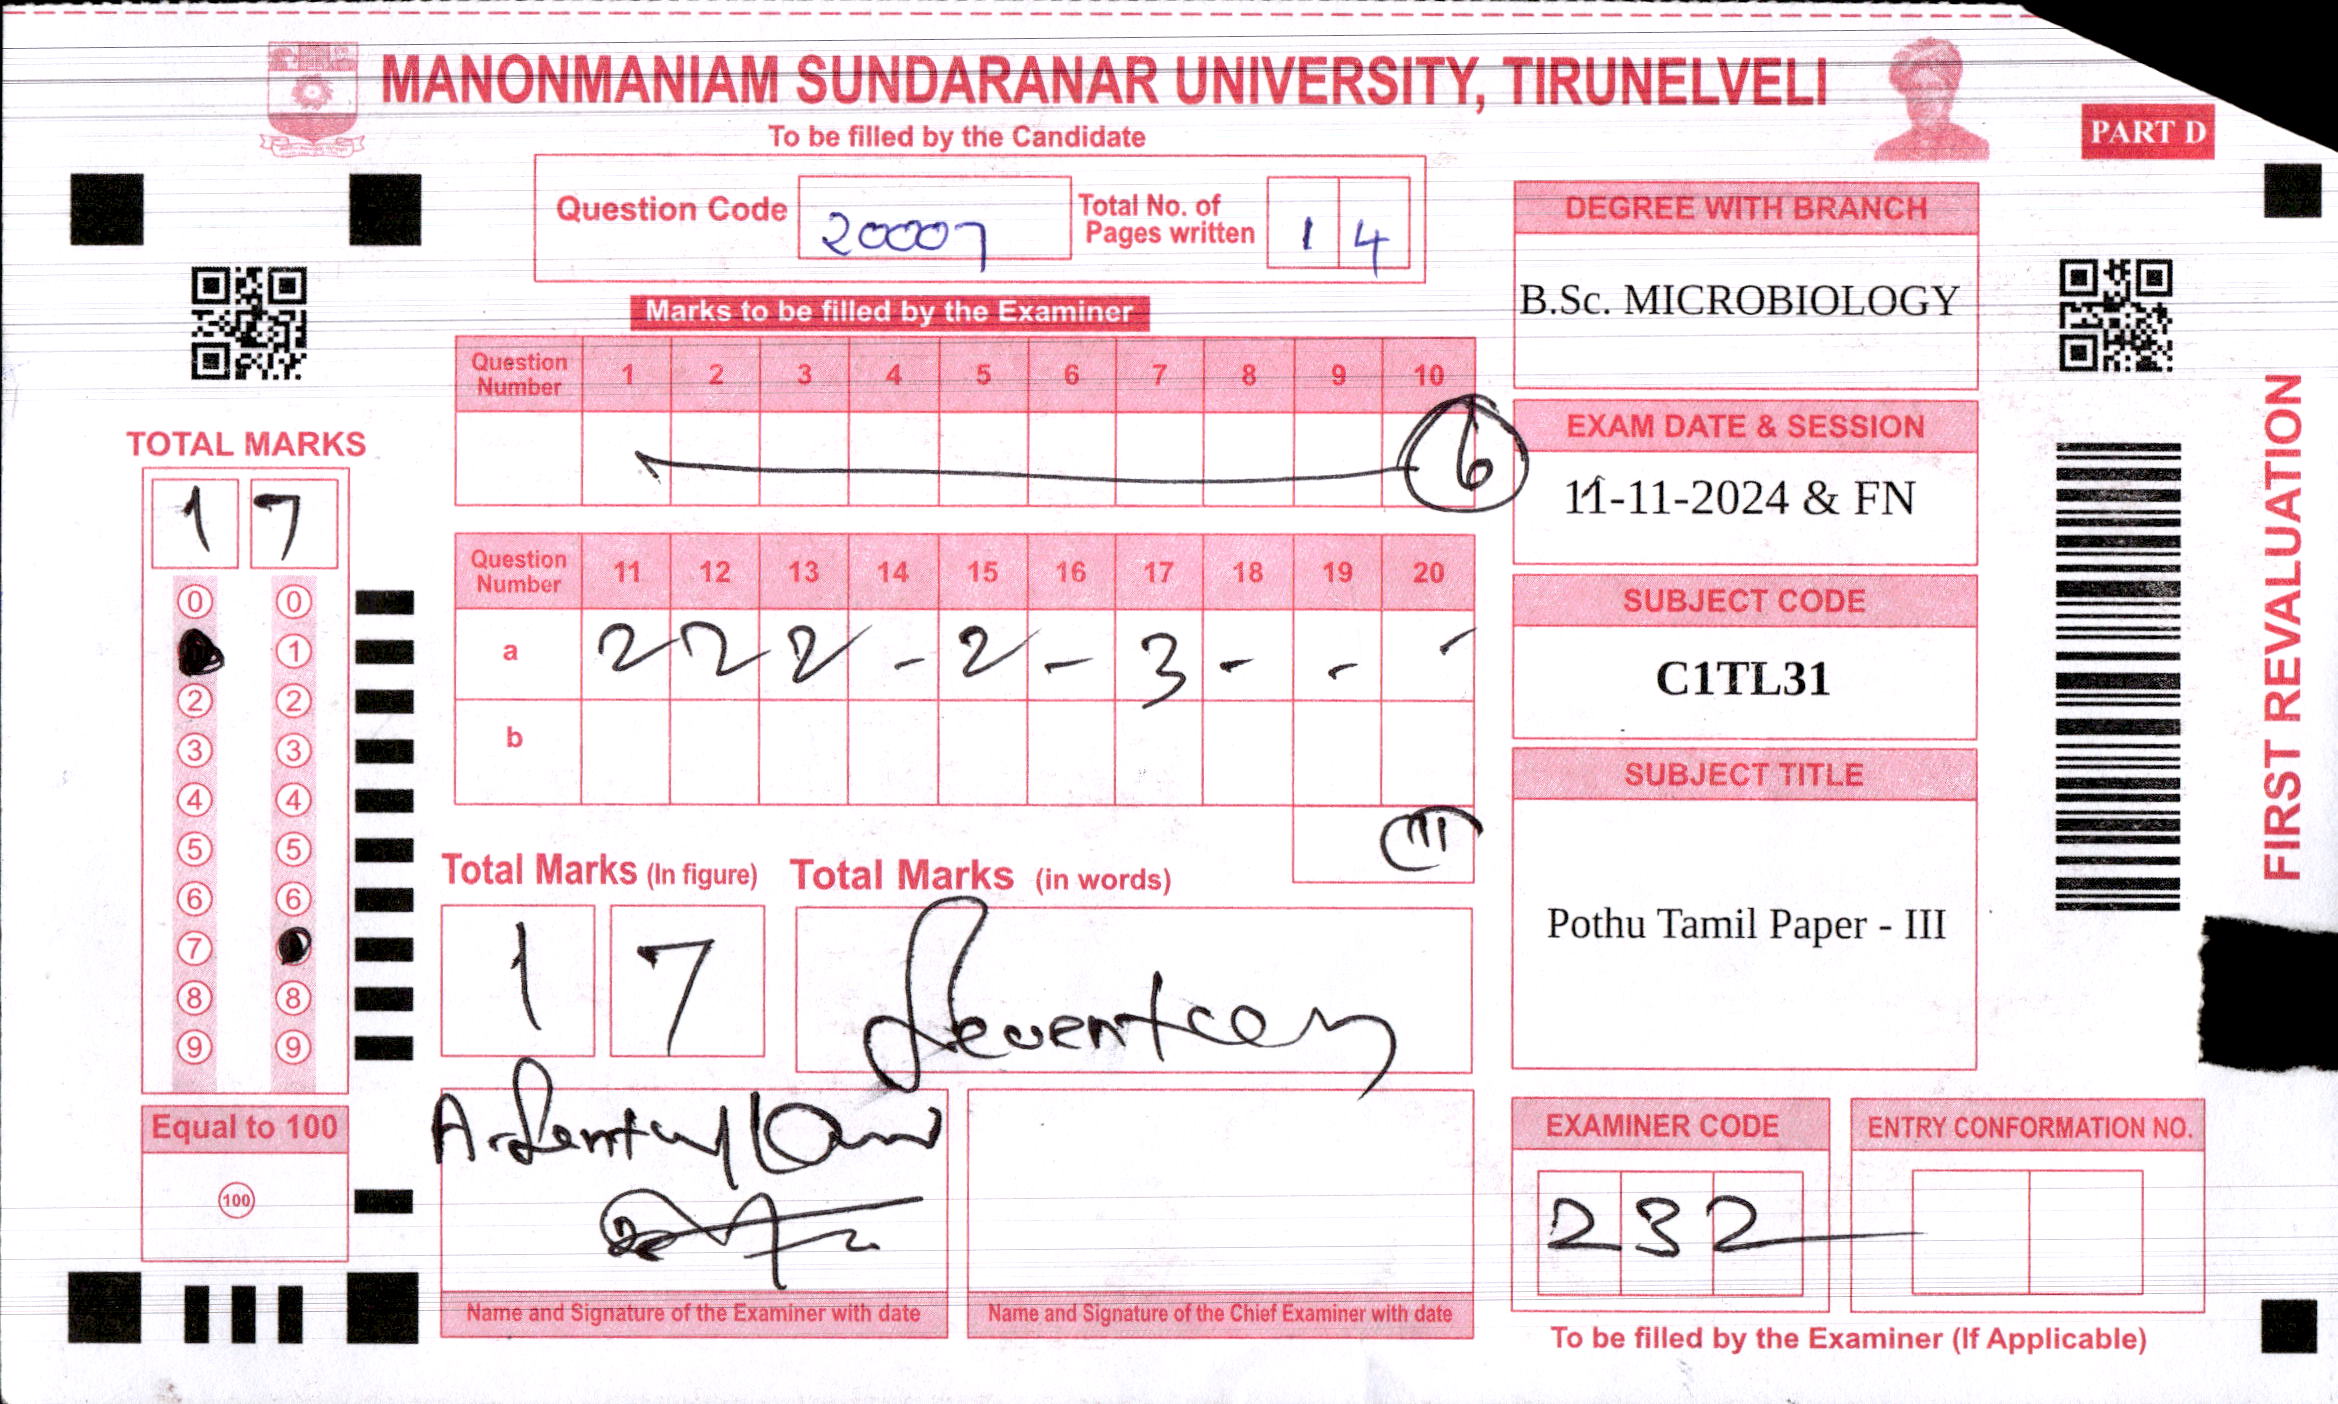 MANONMANIAM SUNDARANAR UNIVERSITY, TIRUNELVELI
PART D
To be filled by the Candidate
Question Code 20007 Total No. of Pages written 1 4
Marks to be filled by the Examiner
Question Number 1 2 3 4 5 6 7 8 9 10
6
Question Number 11 12 13 14 15 16 17 18 19 20
a 2 2 2 - 2 - 3 - - -
b
TOTAL MARKS
1 7
0 0
1
2 2
3 3
4 4
5 5
6 6
7
8 8
9 9
Equal to 100
100
Total Marks (In figure) Total Marks (in words)
1 7 Seventeen
Name and Signature of the Examiner with date
Name and Signature of the Chief Examiner with date
DEGREE WITH BRANCH
B.Sc. MICROBIOLOGY
EXAM DATE & SESSION
11-11-2024 & FN
SUBJECT CODE
C1TL31
SUBJECT TITLE
Pothu Tamil Paper - III
EXAMINER CODE
232
ENTRY CONFORMATION NO.
To be filled by the Examiner (If Applicable)
FIRST REVALUATION